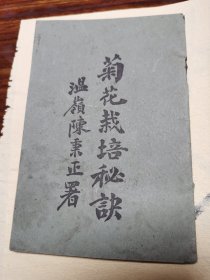 菊花栽培秘訣
温嶺陳秉正署